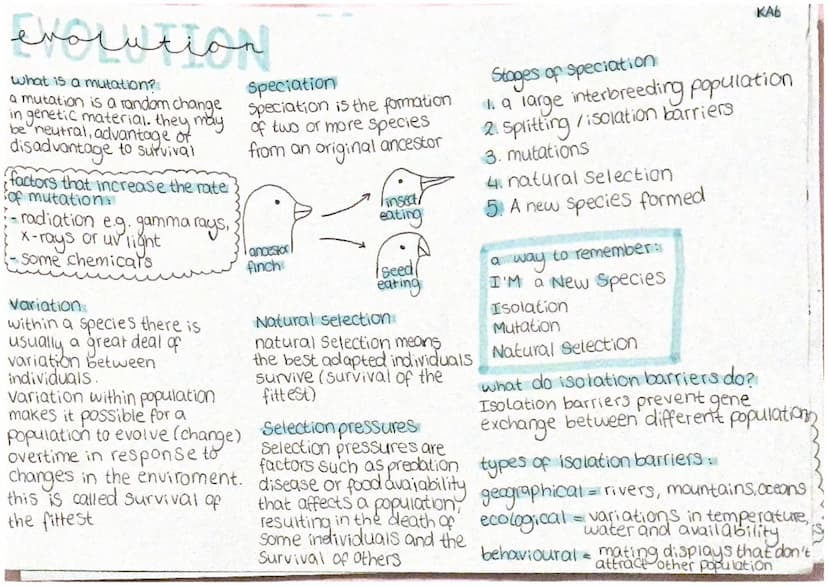 KA6
EVOLUTION
evolution
what is a mutation?
a mutation is a random change
in genetic material. they may
be neutral, advantage or
disadvantage to survival
factors that increase the rate
of mutation:
- radiation e.g. gamma rays,
x-rays or uv light
- some chemicals
Variation
within a species there is
usually a great deal of
variation between
individuals.
variation within population
makes it possible for a
population to evolve (change)
overtime in response to
changes in the enviroment.
this is called survival of
the fittest
Speciation
Speciation is the formation
of two or more species
from an original ancestor
ancestor
finch
insect
eating
seed
eating
Natural selection
natural selection means
the best adapted individuals
survive (survival of the
fittest)
Selection pressures
Selection pressures are
factors such as predation
disease or food availability
that affects a population,
resulting in the death of
some individuals and the
survival of others
Stages of speciation
1. a large interbreeding population
2. splitting / isolation barriers
3. mutations
4. natural selection
5. A new species formed
a way to remember:
I'M a New Species
Isolation
Mutation
Natural Selection
what do isolation barriers do?
Isolation barriers prevent gene
exchange between different population
types of isolation barriers:
geographical = rivers, mountains, oceans
ecological = variations in temperature,
water and availability
behavioural = mating displays that don't
attract other population